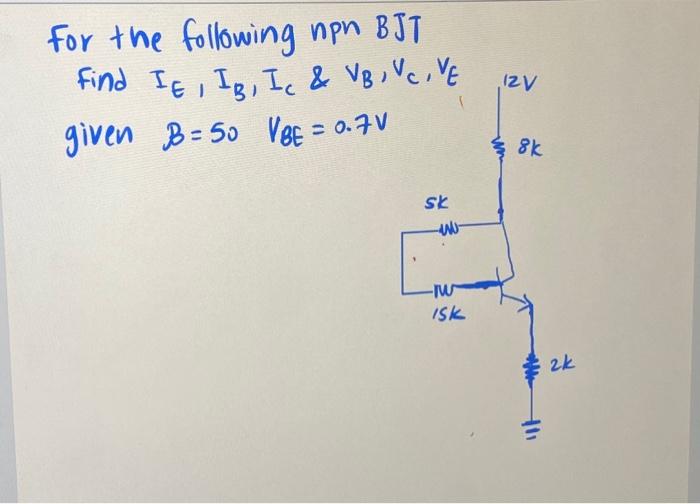 For the following npn BJT
Find IE, IB, Ic & VB, Vc, VE
given β = 50 VBE = 0.7V
12V
8k
5k
15k
2k